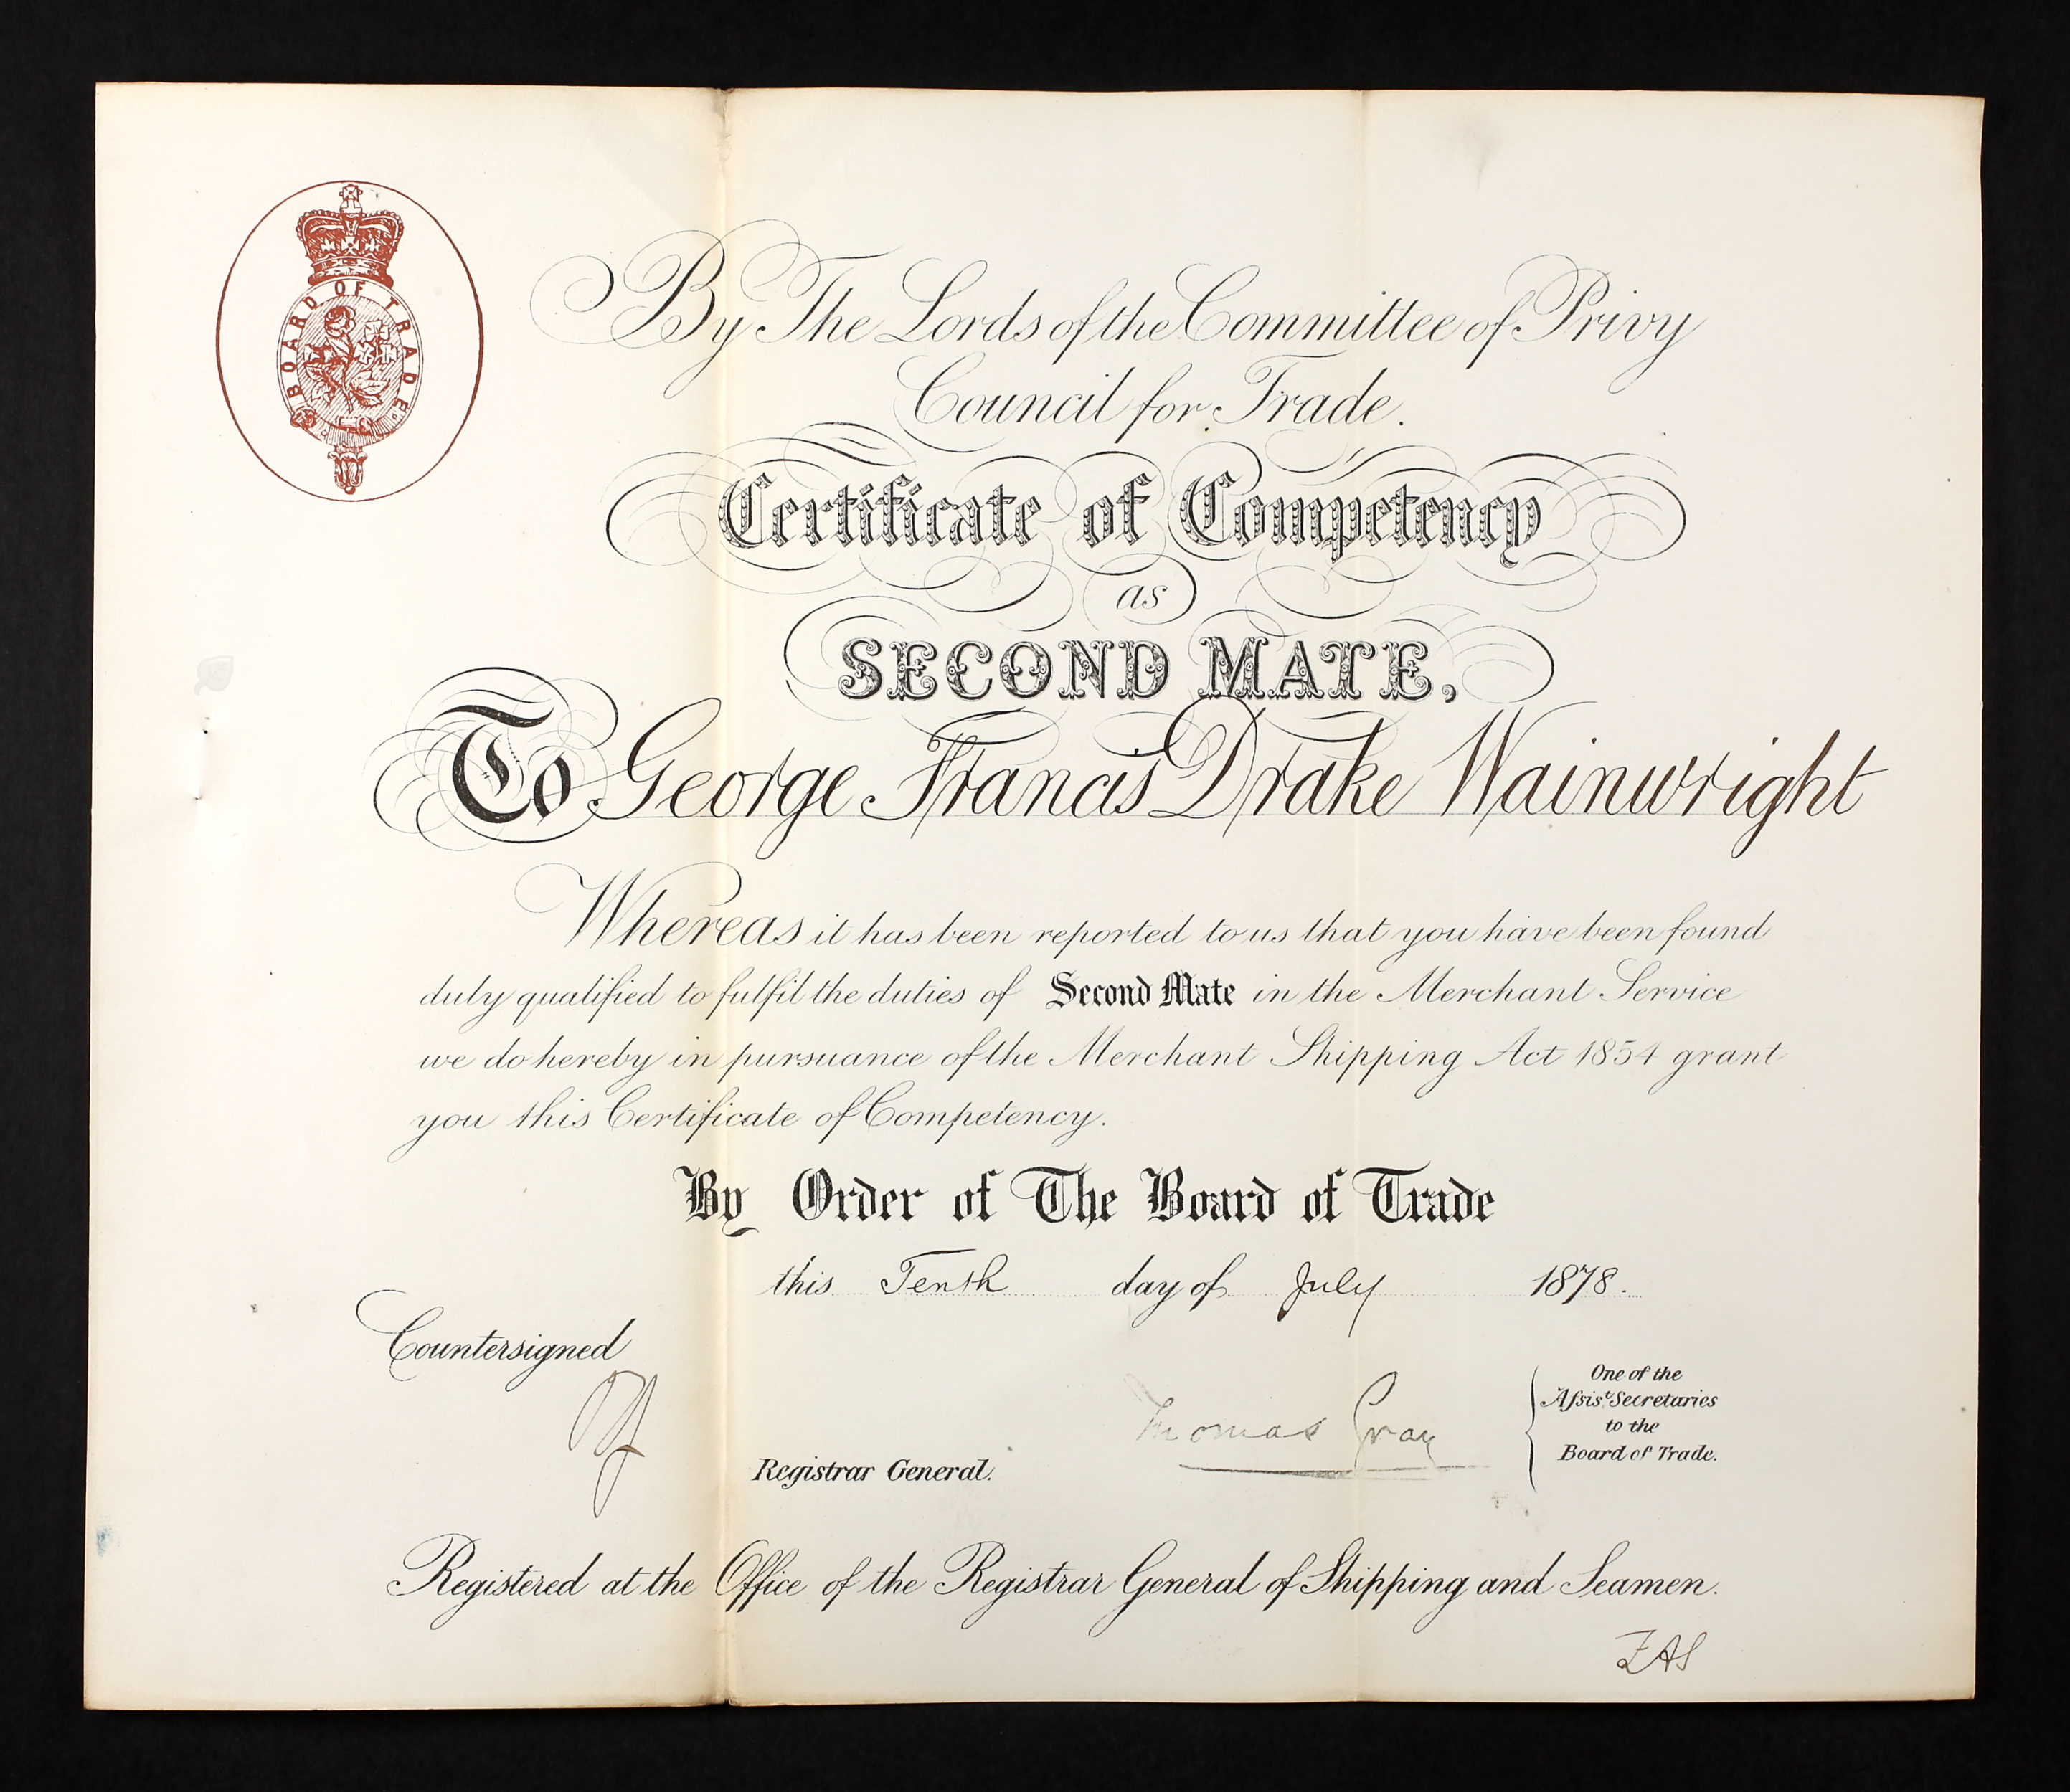 BOARD OF TRADE
By The Lords of the Committee of Privy
Council for Trade.
Certificate of Competency
as
SECOND MATE,
To George Francis Drake Wainwright
Whereas it has been reported to us that you have been found
duly qualified to fulfil the duties of Second Mate in the Merchant Service
we do hereby in pursuance of the Merchant Shipping Act 1854 grant
you this Certificate of Competency.
By Order of The Board of Trade
this Tenth day of July 1878.
Countersigned
Registrar General.
Thomas Gray
One of the
Assist. Secretaries
to the
Board of Trade.
Registered at the Office of the Registrar General of Shipping and Seamen.